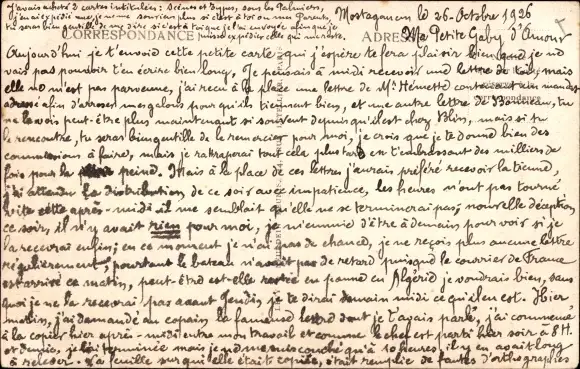 J'avais acheté 2 cartes intitulées: Scènes et Types, sous les Palmiers,
j'en ai expédié une, je ne me souviens plus si c'est à toi ou mes Parents,
tu seras bien gentille de me dire si c'est à toi que je l'ai envoyée afin que je
puisse expédier celle qui me reste.
CORRESPONDANCE
ADRESSE
Mostaganem le 26 Octobre 1926
Ma Petite Gaby d'Amour
Aujourd'hui je t'envoie cette petite carte qui j'espère te fera plaisir bien que je ne
vais pas pouvoir t'en écrire bien long, Je pensais à midi recevoir une lettre de toi mais
elle ne m'est pas parvenue, j'ai reçu à la place une lettre de Mr Hémette contenant un mandat
adressé afin d'arroser mes galons pour qu'ils tiennent bien, et une autre lettre de tu
ne le vois peut-être plus maintenant si souvent depuis qu'il est chez Blis, mais si tu
le rencontre, tu seras bien gentille de le remercier pour moi, je crois que je te donne bien des
commissions à faire, mais je rattraperai tout cela plus tard en t'embrassant des milliers de
fois pour la peine. Mais à la place de ces lettres j'aurais préféré recevoir la tienne,
j'ai attendu la distribution de ce soir avec impatience, les heures n'ont pas tourné
vite cette après-midi il me semblait qu'elle ne se terminerait pas, nouvelle déception
ce soir, il n'y avait rien pour moi, je m'ennuie d'être à demain pour voir si je
la recevrai enfin, en ce moment je n'ai pas de chance, je ne reçois plus aucune lettre
régulièrement, pourtant le bateau n'avait pas de retard puisque le courrier de France
est arrivé ce matin, peut-être est-elle restée en panne en Algérie je voudrais bien, sans
quoi je ne la recevrai pas avant Jeudi, je te dirai demain midi ce qu'il en est. Hier
matin, j'ai demandé au copain la fameuse lettre dont je t'avais parlé, j'ai commencé
à la copier hier après-midi entre mon travail et comme le chef est parti hier soir à 8 H.
et demie, je l'ai terminée mais je ne me suis couché qu'à 10 heures, il y en avait long
à relever. La feuille sur qui elle était copiée, était remplie de fautes d'orthographies